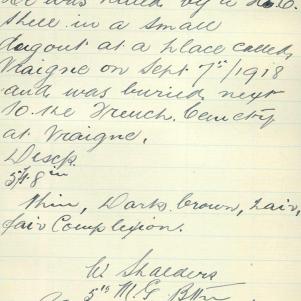 He was killed by a H.E.
Shell in a small
dugout at a place called
Vraigne on Sept 7th/1918
and was buried next
to the French Cemetry
at Vraigne.
Discp.
5ft 8in
thin, Dark brown, hair,
fair Complexion.
W Shaeders
5th M.G. Bttn